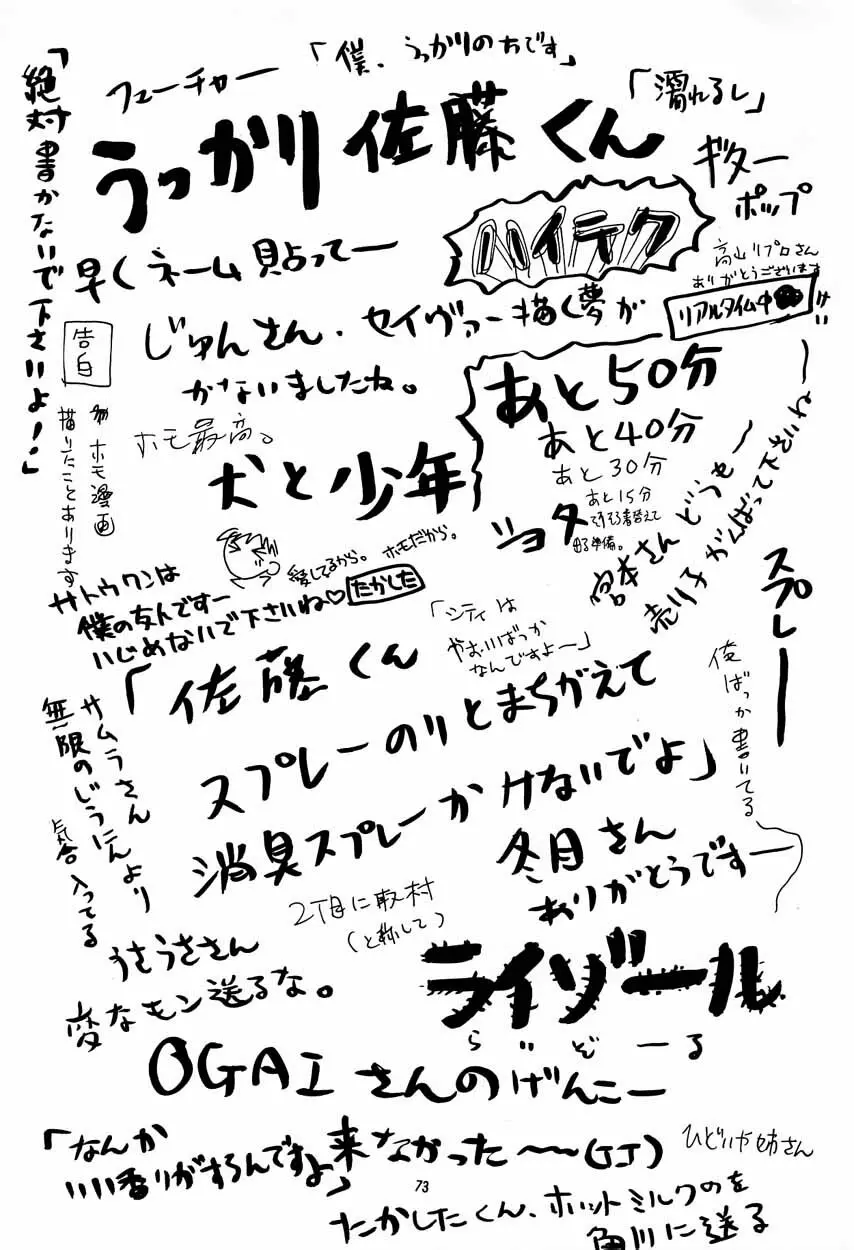 「絶対書かないで下さいよ!」
フューチャー
「僕、うっかりのちです」
「濡れるし」
うっかり佐藤くん
ギター
ポップ
ハイテク
早くネーム貼ってー
高山リプロさん
ありがとうございます
リアルタイム中
じゅんさん、セイヴァー描く夢が
かないましたね。
告白
ホモ漫画
描いたことあります
ホモ最高。
犬と少年
あと50分
あと40分
あと30分
あと15分
そろそろ着替えて
出る準備。
ショタ
宮本さんどうせー
売り子がんばって下さいねー
スプレー
愛してるから。ホモだから。
サトウクンは
僕の友人ですー
いじめないで下さいね♡
たかした
「シティは
やおいばっか
なんですよー」
「佐藤くん
スプレーのりとまちがえて
消臭スプレーかけないでよ」
俺ばっか書いてる
サムラさん
無限のじうにんより
気合入ってる
冬月さん
ありがとうですー
2丁目に取材
(と称して)
うさうささん
変なモン送るな。
ライゾール
らいぞーる
OGAIさんのげんこー
来なかった〜〜(GJ)
「なんか
いい香りがするんですよ」
ひどいや姉さん
73
たかしたくん、ホットミルクのを
角川に送る